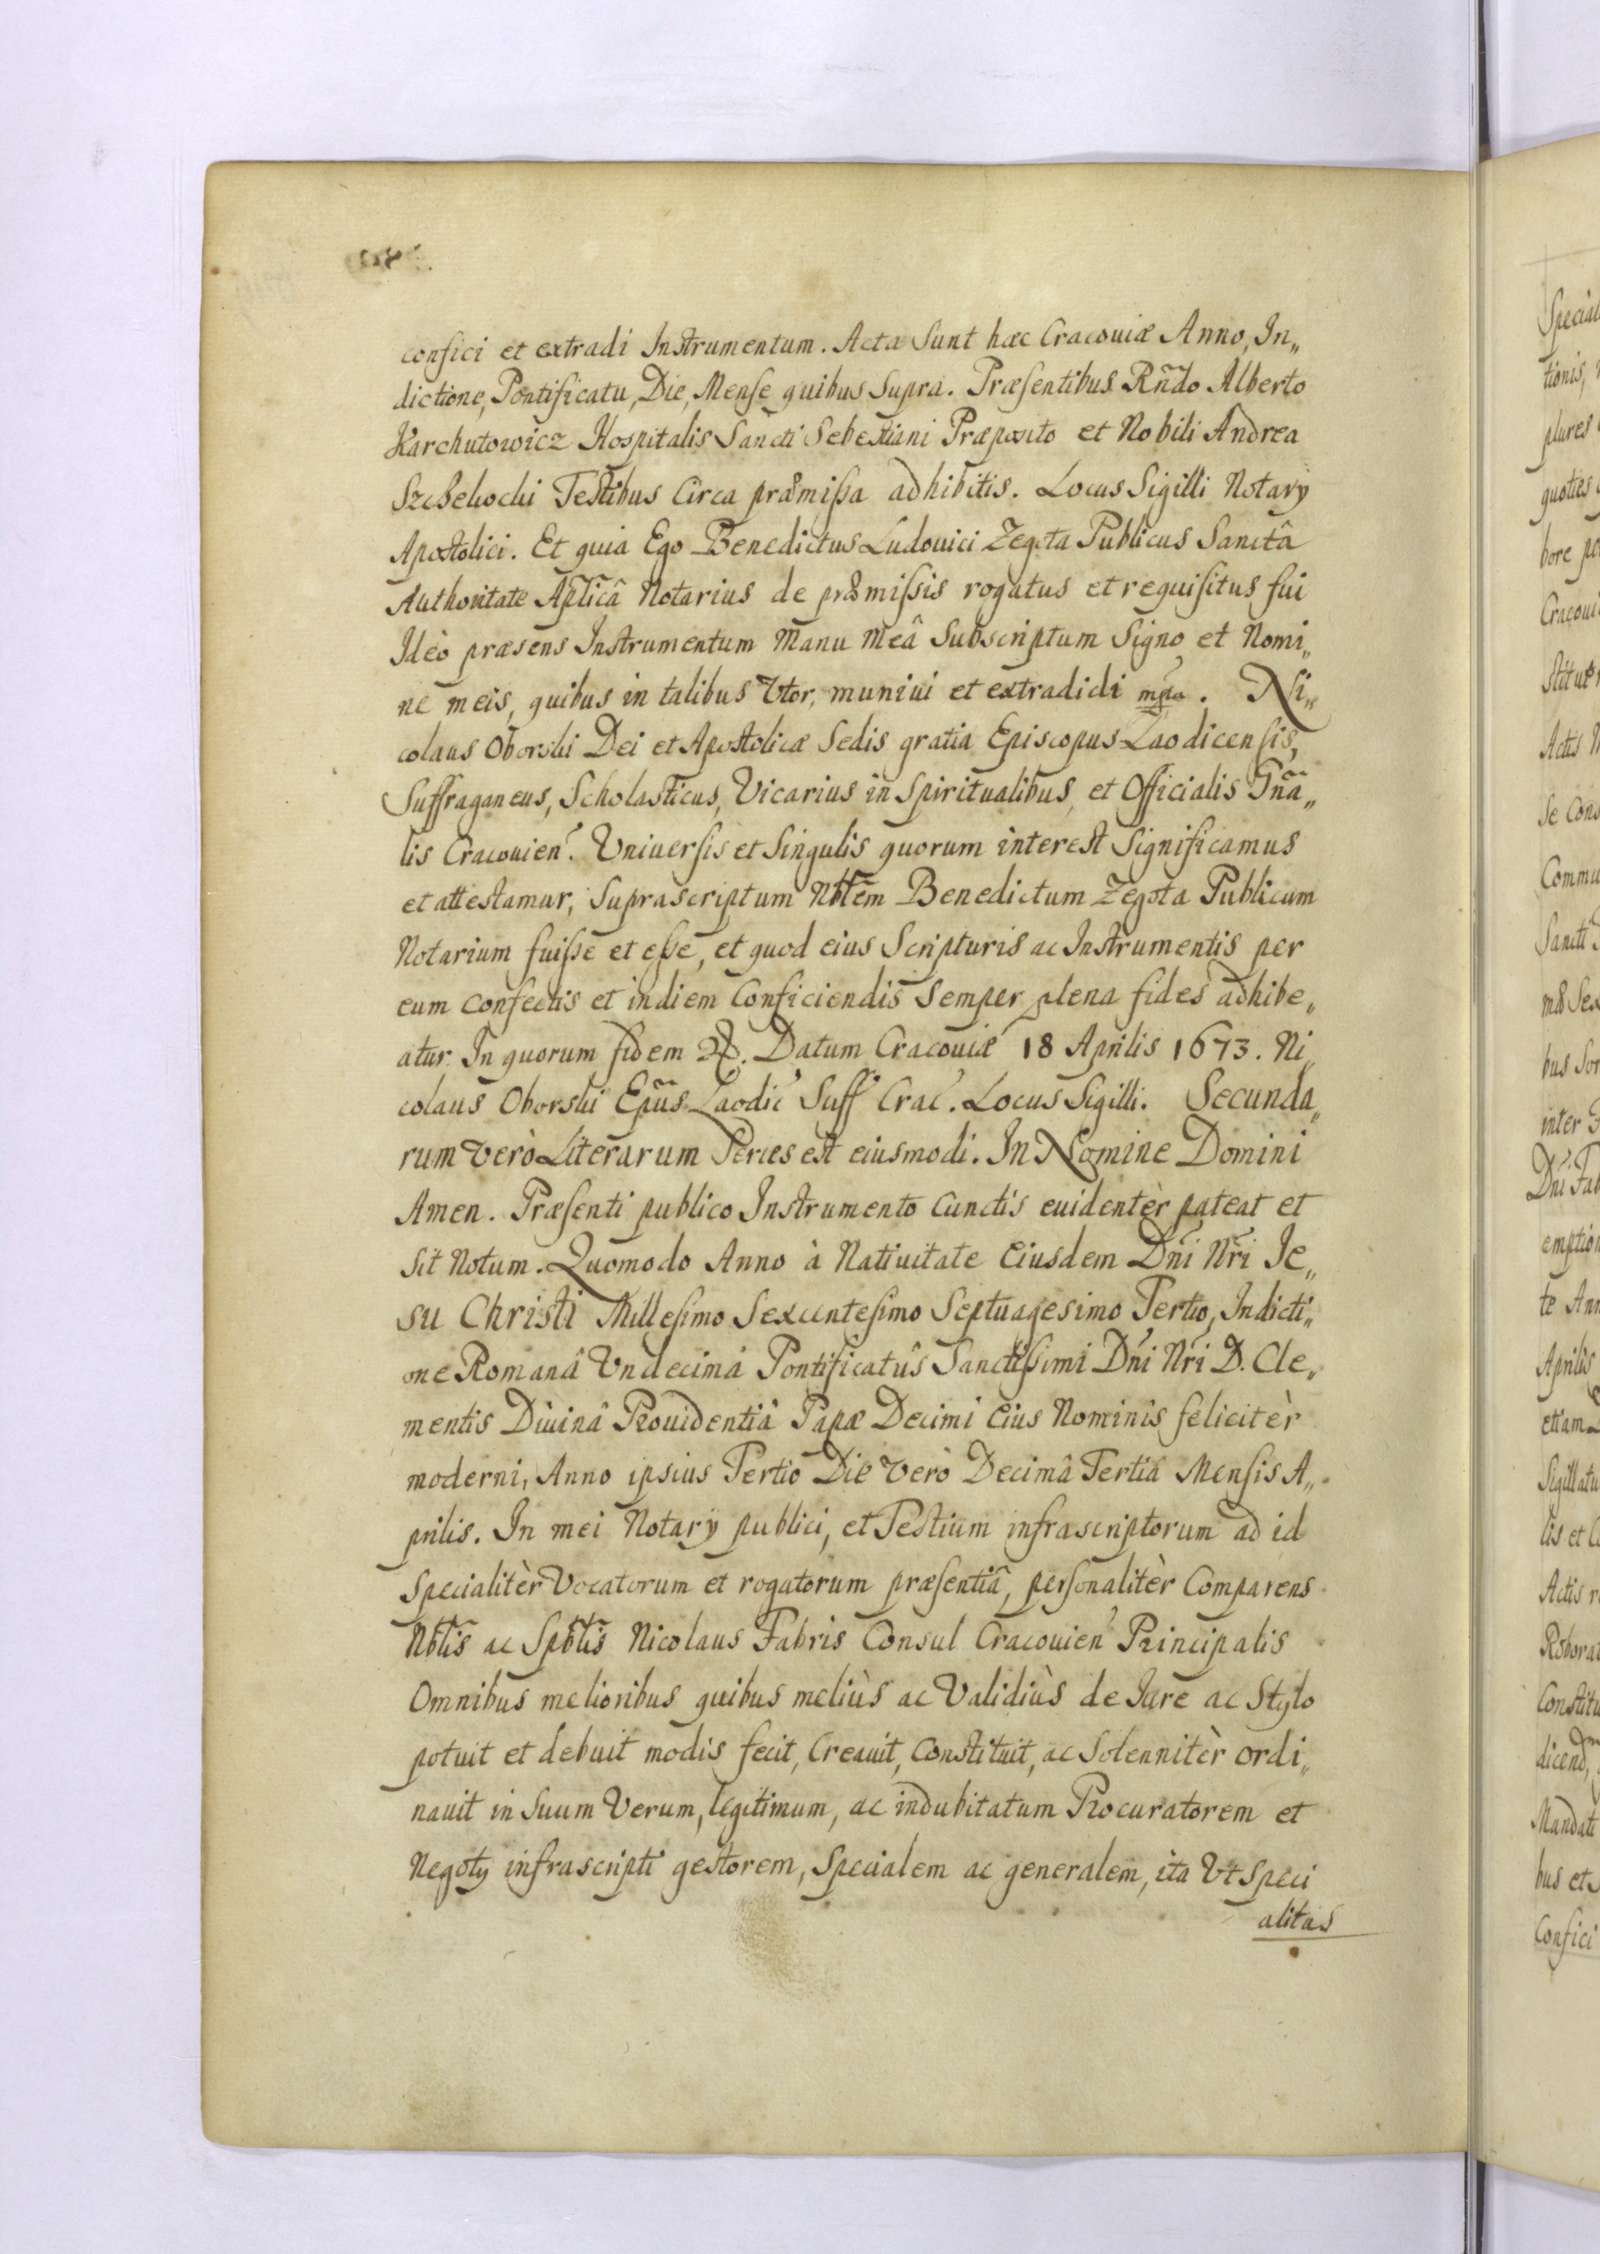 confici et extradi Instrumentum. Acta Sunt hæc Cracouiæ Anno, In„
dictione, Pontificatu, Die, Mense quibus Supra. Præsentibus Rñdo Alberto
Karchutowicz Hospitalis Sancti Sebestiani Præposito et Nobili Andrea
Testibus Circa præmissa adhibitis. Locus Sigilli Notarÿ
Apostolici. Et quia Ego Benedictus Ludouici Zegota Publicus Sanctâ
Authoritate Aplicâ Notarius de præmissis rogatus et requisitus fui
Ideò præsens Instrumentum Manu Meâ Subscriptum Signo et Nomi„
ne meis, quibus in talibus Vtor, muniui et extradidi mpa. Ni„
colaus Oborski Dei et Apostolicæ Sedis gratia Episcopus Laodicensis,
Suffraganeus, Scholasticus, Vicarius in Spiritualibus, et Officialis Gña„
lis Cracouien. Vniuersis et Singulis quorum interest Significamus
et attestamur, Suprascriptum Nblem Benedictum Zegota Publicum
Notarium fuisse et esse, et quod eius Scripturis ac Instrumentis per
eum confectis et indiem Conficiendis Semper plena fides adhibe„
atur In quorum fidem &. Datum Cracouiæ 18 Aprilis 1673. Ni„
colaus Oborski Epũs Laodic Suff Crac. Locus Sigilli. Secunda„
rum verò Literarum Series est eiusmodi. In Nomine Domini
Amen. Præsenti publico Instrumento Cunctis euidentèr pateat et
Sit Notum. Quomodo Anno à Natiuitate Eiusdem Dñi Nri Je„
su Christi Millesimo Sexcentesimo Septuagesimo Tertio, Indicti„
one Romanâ Vndecimâ Pontificatûs Sanctissimi Dñi Nri D. Cle„
mentis Diuinâ Prouidentiâ Papæ Decimi Eius Nominis felicitèr
moderni, Anno ipsius Tertio Die Verò Decimâ Tertiâ Mensis A„
prilis. In mei Notarÿ publici, et Testium infrascriptorum ad id
Specialitèr Vocatorum et rogatorum præsentiâ, personalitèr Comparens
Nblis ac Spblis Nicolaus Fabris Consul Cracouien Principalis
Omnibus melioribus quibus meliùs ac Validiùs de Iure ac Stylo
potuit et debuit modis fecit, Creauit, Constituit, ac Solennitèr ordi„
nauit in Suum Verum, legitimum, ac indubitatum Procuratorem et
Negotÿ infrascripti gestorem, Specialem ac generalem, ita Vt Speci
alitas